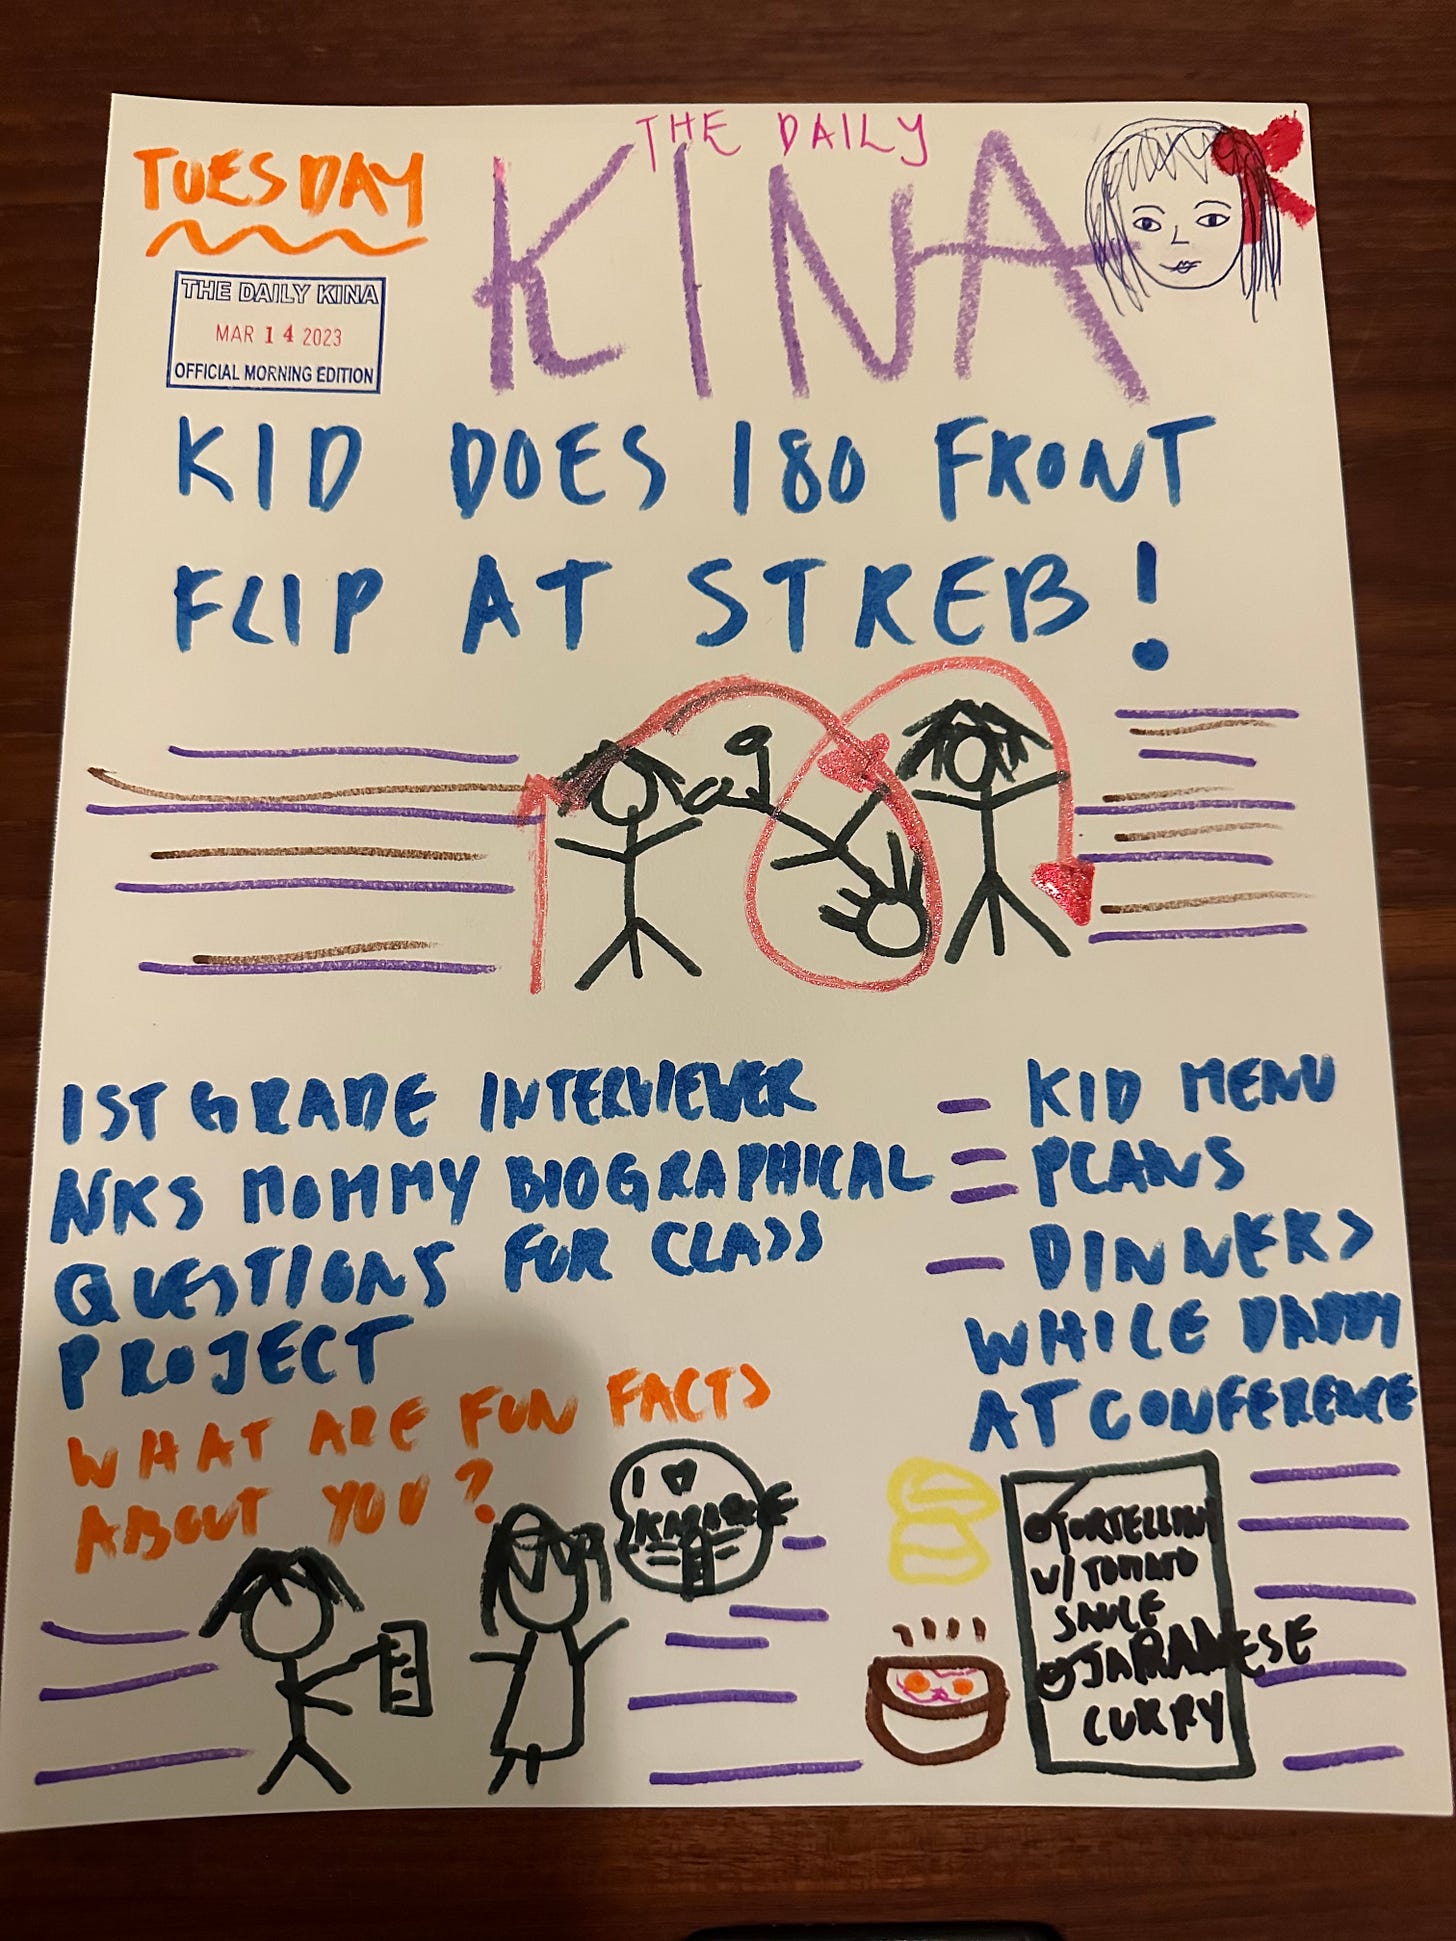 THE DAILY
KINA
TUESDAY
THE DAILY KINA
MAR 14 2023
OFFICIAL MORNING EDITION
KID DOES 180 FRONT
FLIP AT STREB!
1ST GRADE INTERVIEWER
ASKS MOMMY BIOGRAPHICAL
QUESTIONS FOR CLASS
PROJECT
WHAT ARE FUN FACTS
ABOUT YOU?
I ♡
KARAOKE
KID MENU
PLANS
DINNERS
WHILE DADDY
AT CONFERENCE
TORTELLINI
W/ TOMATO
SAUCE
JAPANESE
CURRY